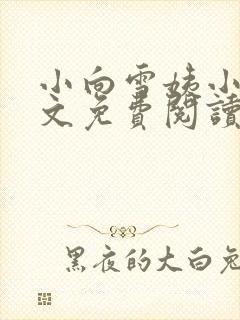 小向雪姨小
文免費閱讀
黑夜的大白兔